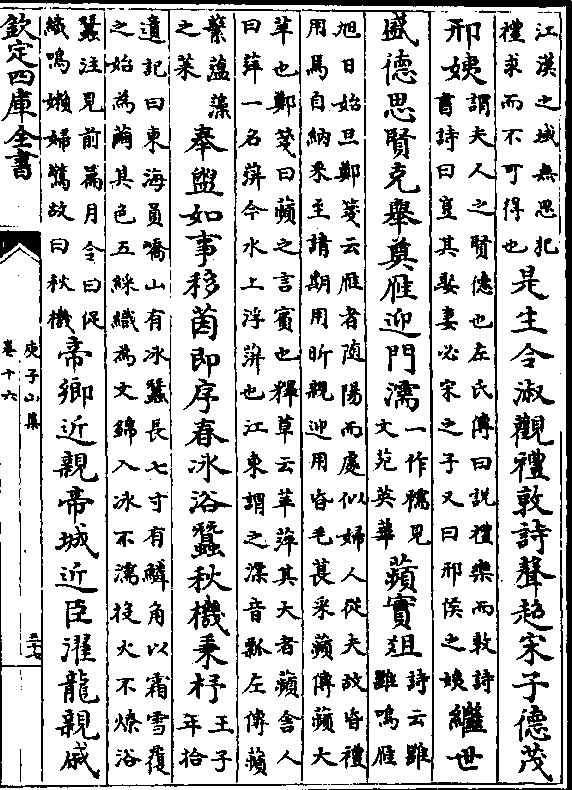 江漢之域無思犯
禮求而不可得也
是生令淑觀禮敦詩聲超宋子德茂
邢姨
謂夫人之賢德也左氏傳曰說禮樂而敦詩
書詩曰豈其娶妻必宋之子又曰邢侯之姨
繼世
盛德思賢克舉奠雁迎門濡
一作檽見
文苑英華
蘋實俎
詩云雝
雝鳴雁
旭日始旦鄭箋云雁者隨陽而處似婦人從夫故皆禮
用焉自納采至請期用昕親迎用昏毛萇采蘋傳蘋大
苹也鄭箋曰蘋之言賓也釋草云苹萍其大者蘋舍人
曰萍一名蓱今水上浮蓱也江東謂之薸音瓢左傳蘋
蘩薀藻
之菜
奉盥如事移茵即序春冰浴蠶秋機秉杼
王子
年拾
遺記曰東海員嶠山有冰蠶長七寸有鱗角以霜雪覆
之始為繭其色五綵織為文錦入冰不濡投火不燎浴
蠶注見前篇月令曰促
織鳴嬾婦驚故曰秋機
帝鄉近親帝城近臣濯龍親戚
欽定四庫全書
庾子山集
卷十六